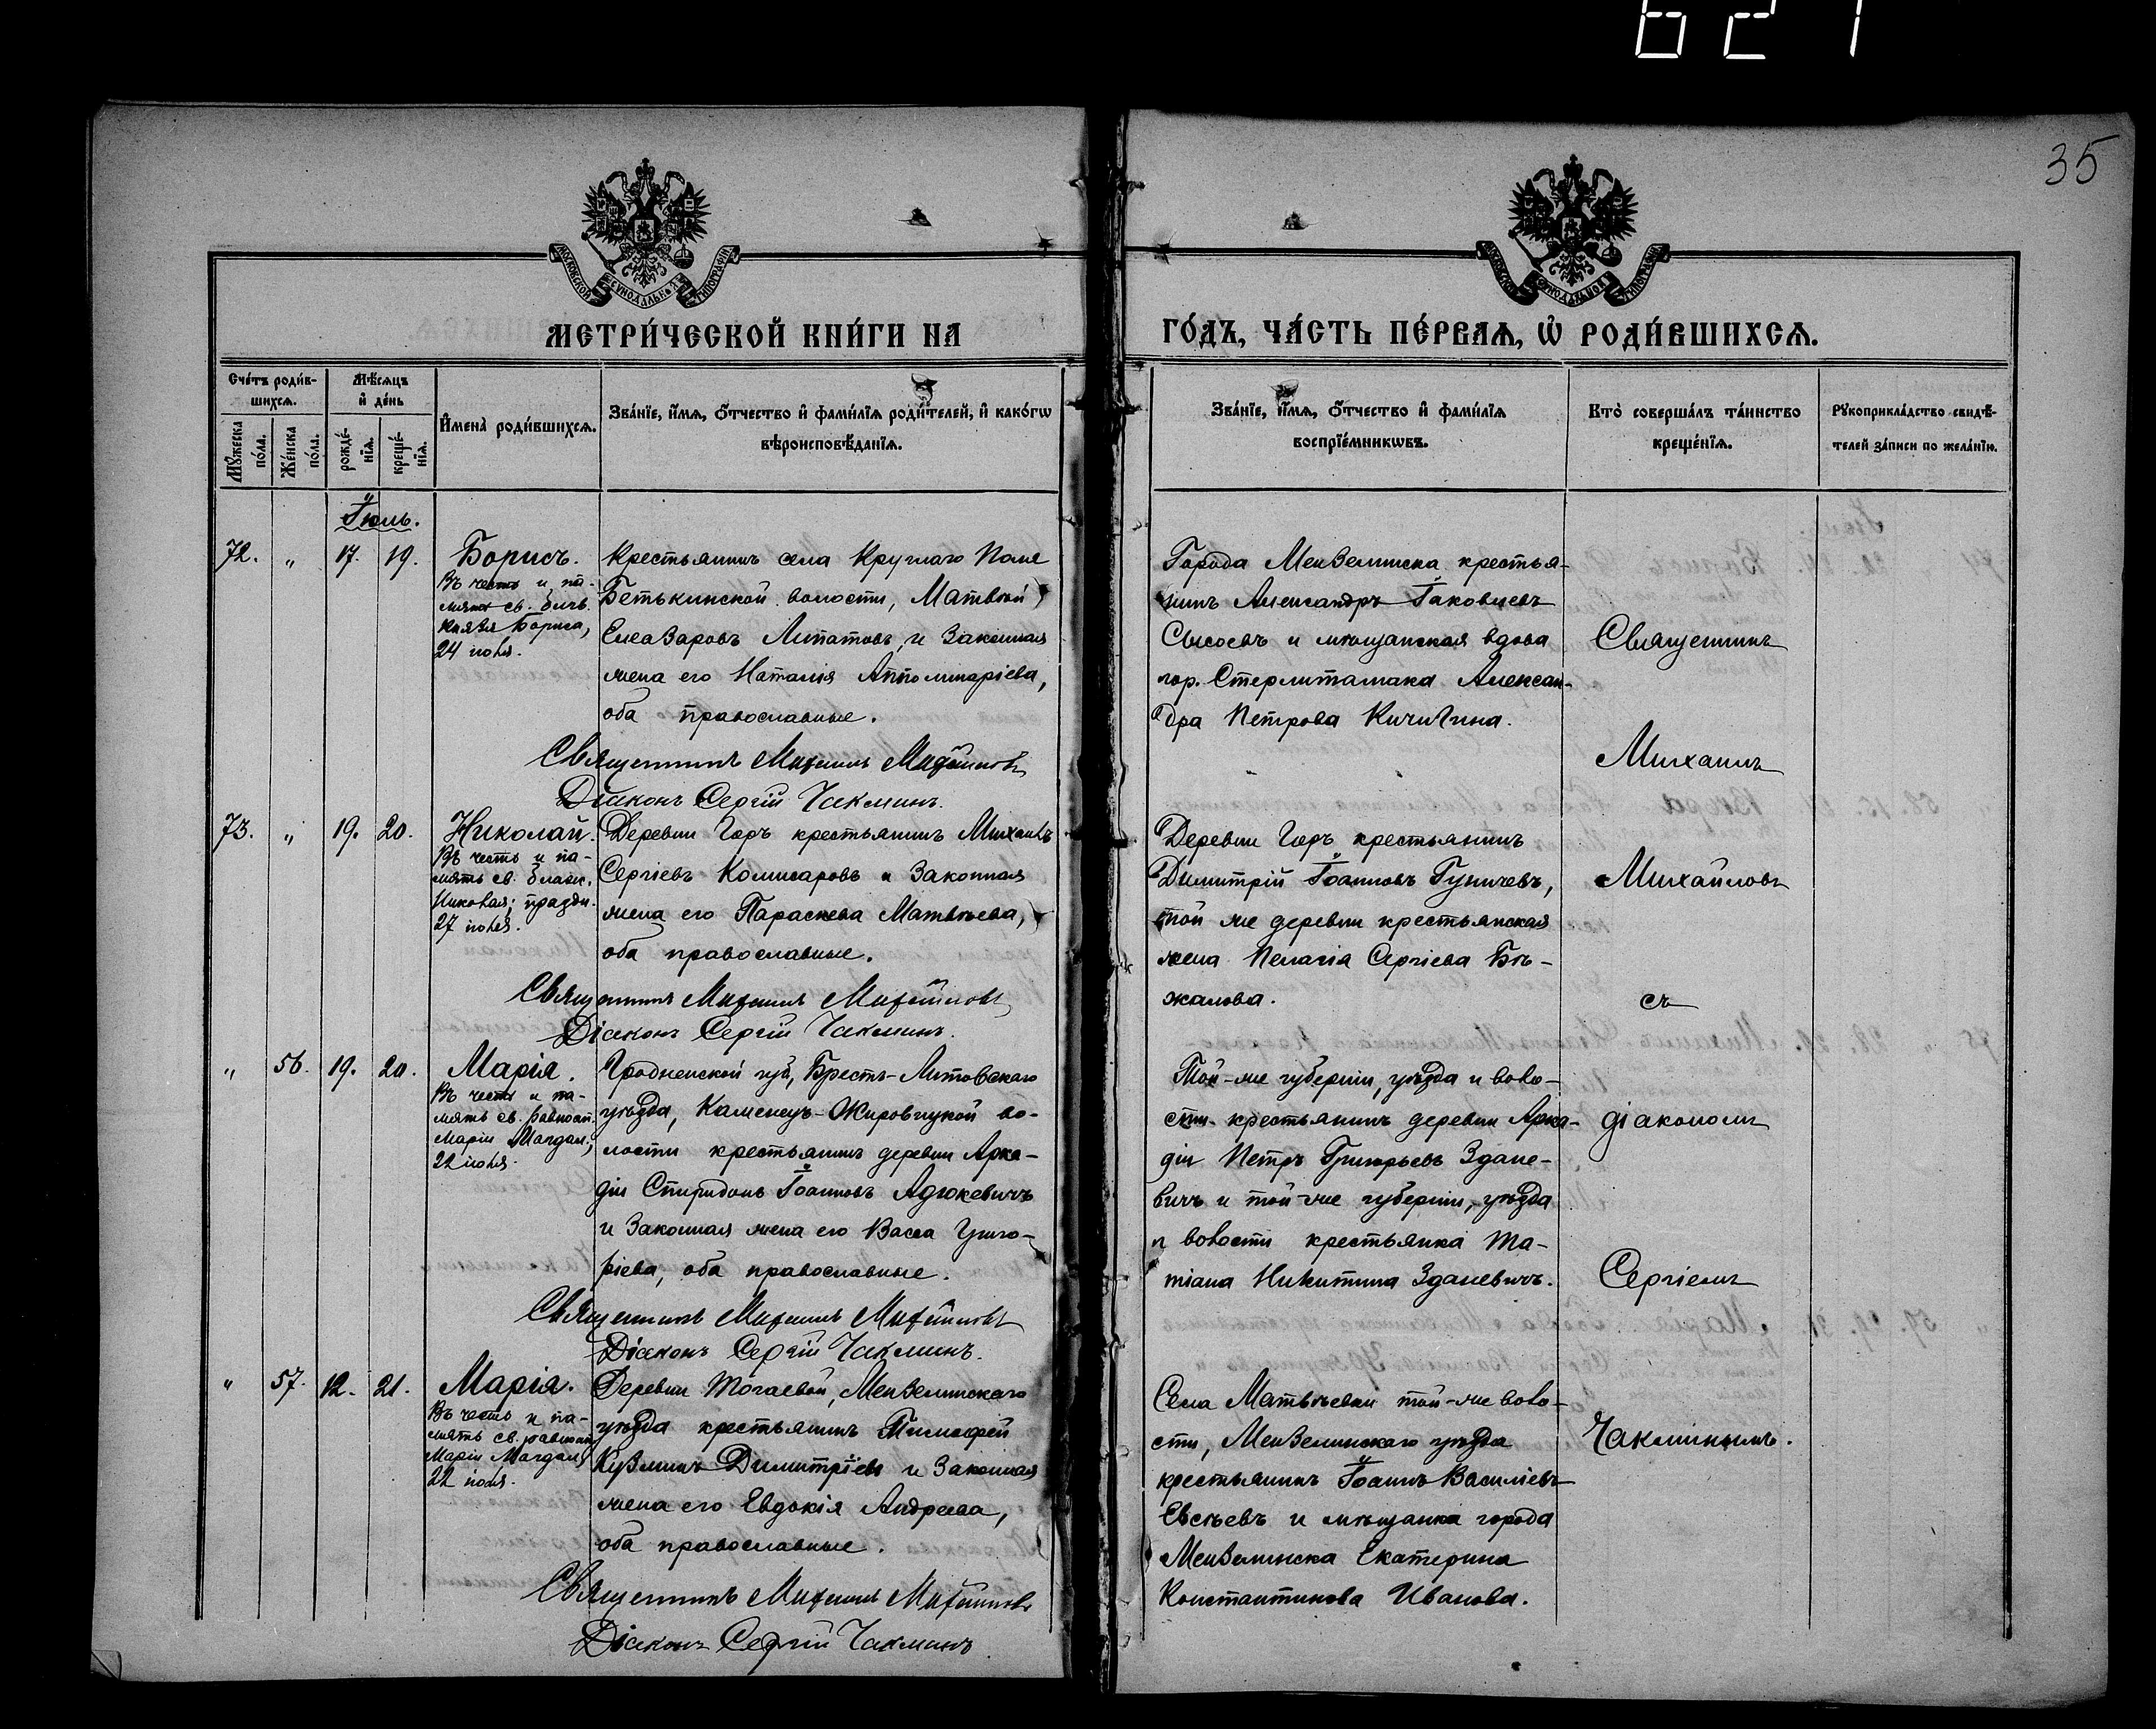 627
35
МОСКОВСКОЙ СѴНОДАЛЬНОЙ ТИПОГРАФІИ
МОСКОВСКОЙ СѴНОДАЛЬНОЙ ТИПОГРАФІИ
МЕТРИ́ЧЕСКОЙ КНИ́ГИ НА
ГО́ДЪ, ЧА́СТЬ ПЕ́РВАѦ, Ѽ РОДИ́ВШИХСѦ.
Сче́тъ роди́в-
шихсѧ.
Мѣ́сѧцъ
и҆ де́нь
Мꙋ́жеска по́ла.
Же́нска по́ла.
рожде́-
нїѧ.
креще́-
нїѧ.
И҆мена̀ роди́вшихсѧ.
Зва́нїе, и҆́мѧ, ѻ҆́тчество и҆ фами́лїѧ роди́телей, и҆ како́гѡ
вѣроисповѣ́данїѧ.
Зва́нїе, и҆́мѧ, ѻ҆́тчество и҆ фами́лїѧ
воспрїе́мникѡвъ.
Кто̀ соверша́лъ та́инство
креще́нїѧ.
Рꙋкоприкла́дство свидѣ́-
телей за́писи по жела́нїю.
Іюль.
72. " 17. 19.
Борисъ.
Въ честь и па-
мять св. блгв.
Князя Бориса,
24 іюля.
Крестьянинъ села Круглаго Поля
Бетькинской волости, Матвѣй
Елеазаровъ Липатовъ, и законная
жена его Наталія Апполинаріева,
оба православные.
Священникъ Михаилъ Михайловъ
Діаконъ Сергій Чакминъ.
Города Мензелинска крестья-
нинъ Александръ Іаковлевъ
Сысоевъ и мѣщанская вдова
гор. Стерлитамака Алексан-
дра Петрова Кичигина.
73. " 19. 20.
Николай.
Въ честь и па-
мять св. блаж.
Николая; праздн.
27 іюля.
Деревни Горъ крестьянинъ Михаилъ
Сергіевъ Комисаровъ и законная
жена его Параскева Матвѣева,
оба православные.
Священникъ Михаилъ Михайловъ
Діаконъ Сергій Чакминъ.
Деревни Горъ крестьянинъ
Димитрій Іоанновъ Гуничевъ,
той же деревни крестьянская
жена Пелагія Сергіева Бѣ-
жалова.
" 56. 19. 20.
Марія.
Въ честь и па-
мять св. равноап.
Маріи Магдал.,
22 іюля.
Гродненской губ., Брестъ-Литовскаго
уѣзда, Каменецъ-Жировицкой во-
лости крестьянинъ деревни Арка-
діи Спиридонъ Іоанновъ Адюкевичъ
и законная жена его Васса Григо-
ріева, оба православные.
Священникъ Михаилъ Михайловъ
Діаконъ Сергій Чакминъ.
Той-же губерніи, уѣзда и воло-
сти крестьянинъ деревни Арка-
діи Петръ Григорьевъ Здане-
вичъ и той-же губерніи, уѣзда
и волости крестьянка Та-
тіана Никитина Зданевичъ.
" 57. 12. 21.
Марія.
Въ честь и па-
мять св. равноап.
Маріи Магдал.,
22 іюля.
Деревни Тогаевой, Мензелинскаго
уѣзда крестьянинъ Тимофей
Кузминъ Димитріевъ и законная
жена его Евдокія Андреева,
оба православные.
Священникъ Михаилъ Михайловъ
Діаконъ Сергій Чакминъ
Села Матвѣевки той-же воло-
сти, Мензелинскаго уѣзда
крестьянинъ Іоаннъ Василіевъ
Евсѣевъ и мѣщанка города
Мензелинска Екатерина
Константинова Иванова.
Священникъ
Михаилъ
Михайловъ
съ
діакономъ
Сергіемъ
Чакминымъ.